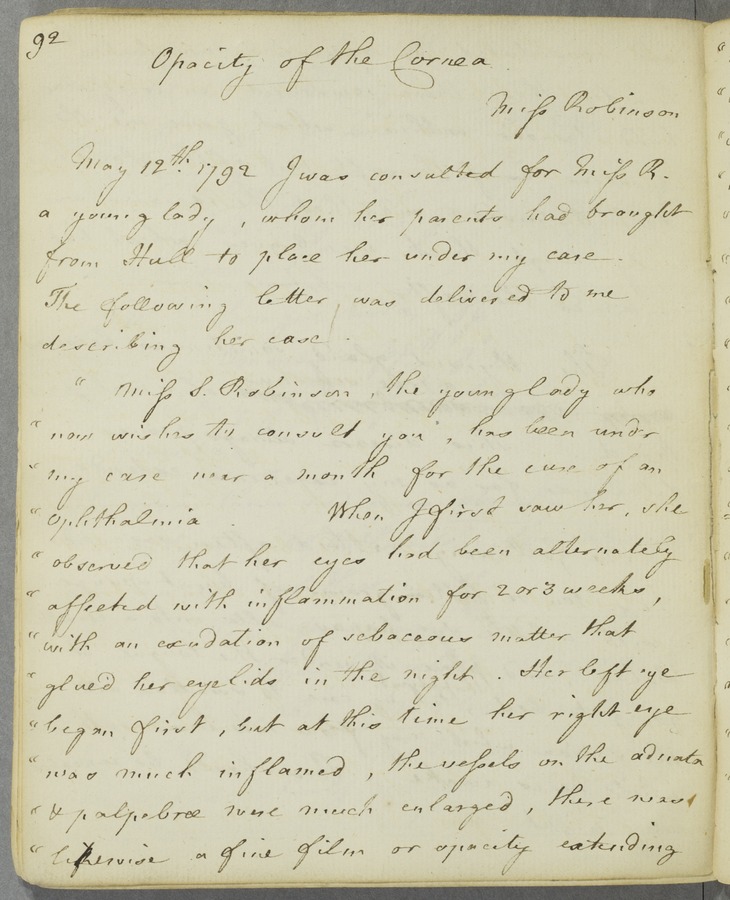 92
Opacity of the Cornea
Miſs Robinson
May 12th. 1792 I was consulted for Miſs R.
a young lady, whom her parents had brought
from Hull to place her under my care.
The following letter, was delivered to me
describing her case.
" Miſs S. Robinson, the young lady who
" now wishes to consult you, has been under
" my care near a month for the cure of an
" ophthalmia. When I first saw her, she
" observed that her eyes had been alternately
" affected with inflammation for 2 or 3 weeks,
" with an exudation of sebaceous matter that
" glued her eyelids in the night. Her left eye
" began first, but at this time her right eye
" was much inflamed, the veſsels on the adnata
" & palpebræ were much enlarged, there was
" likewise a fine film or opacity extending